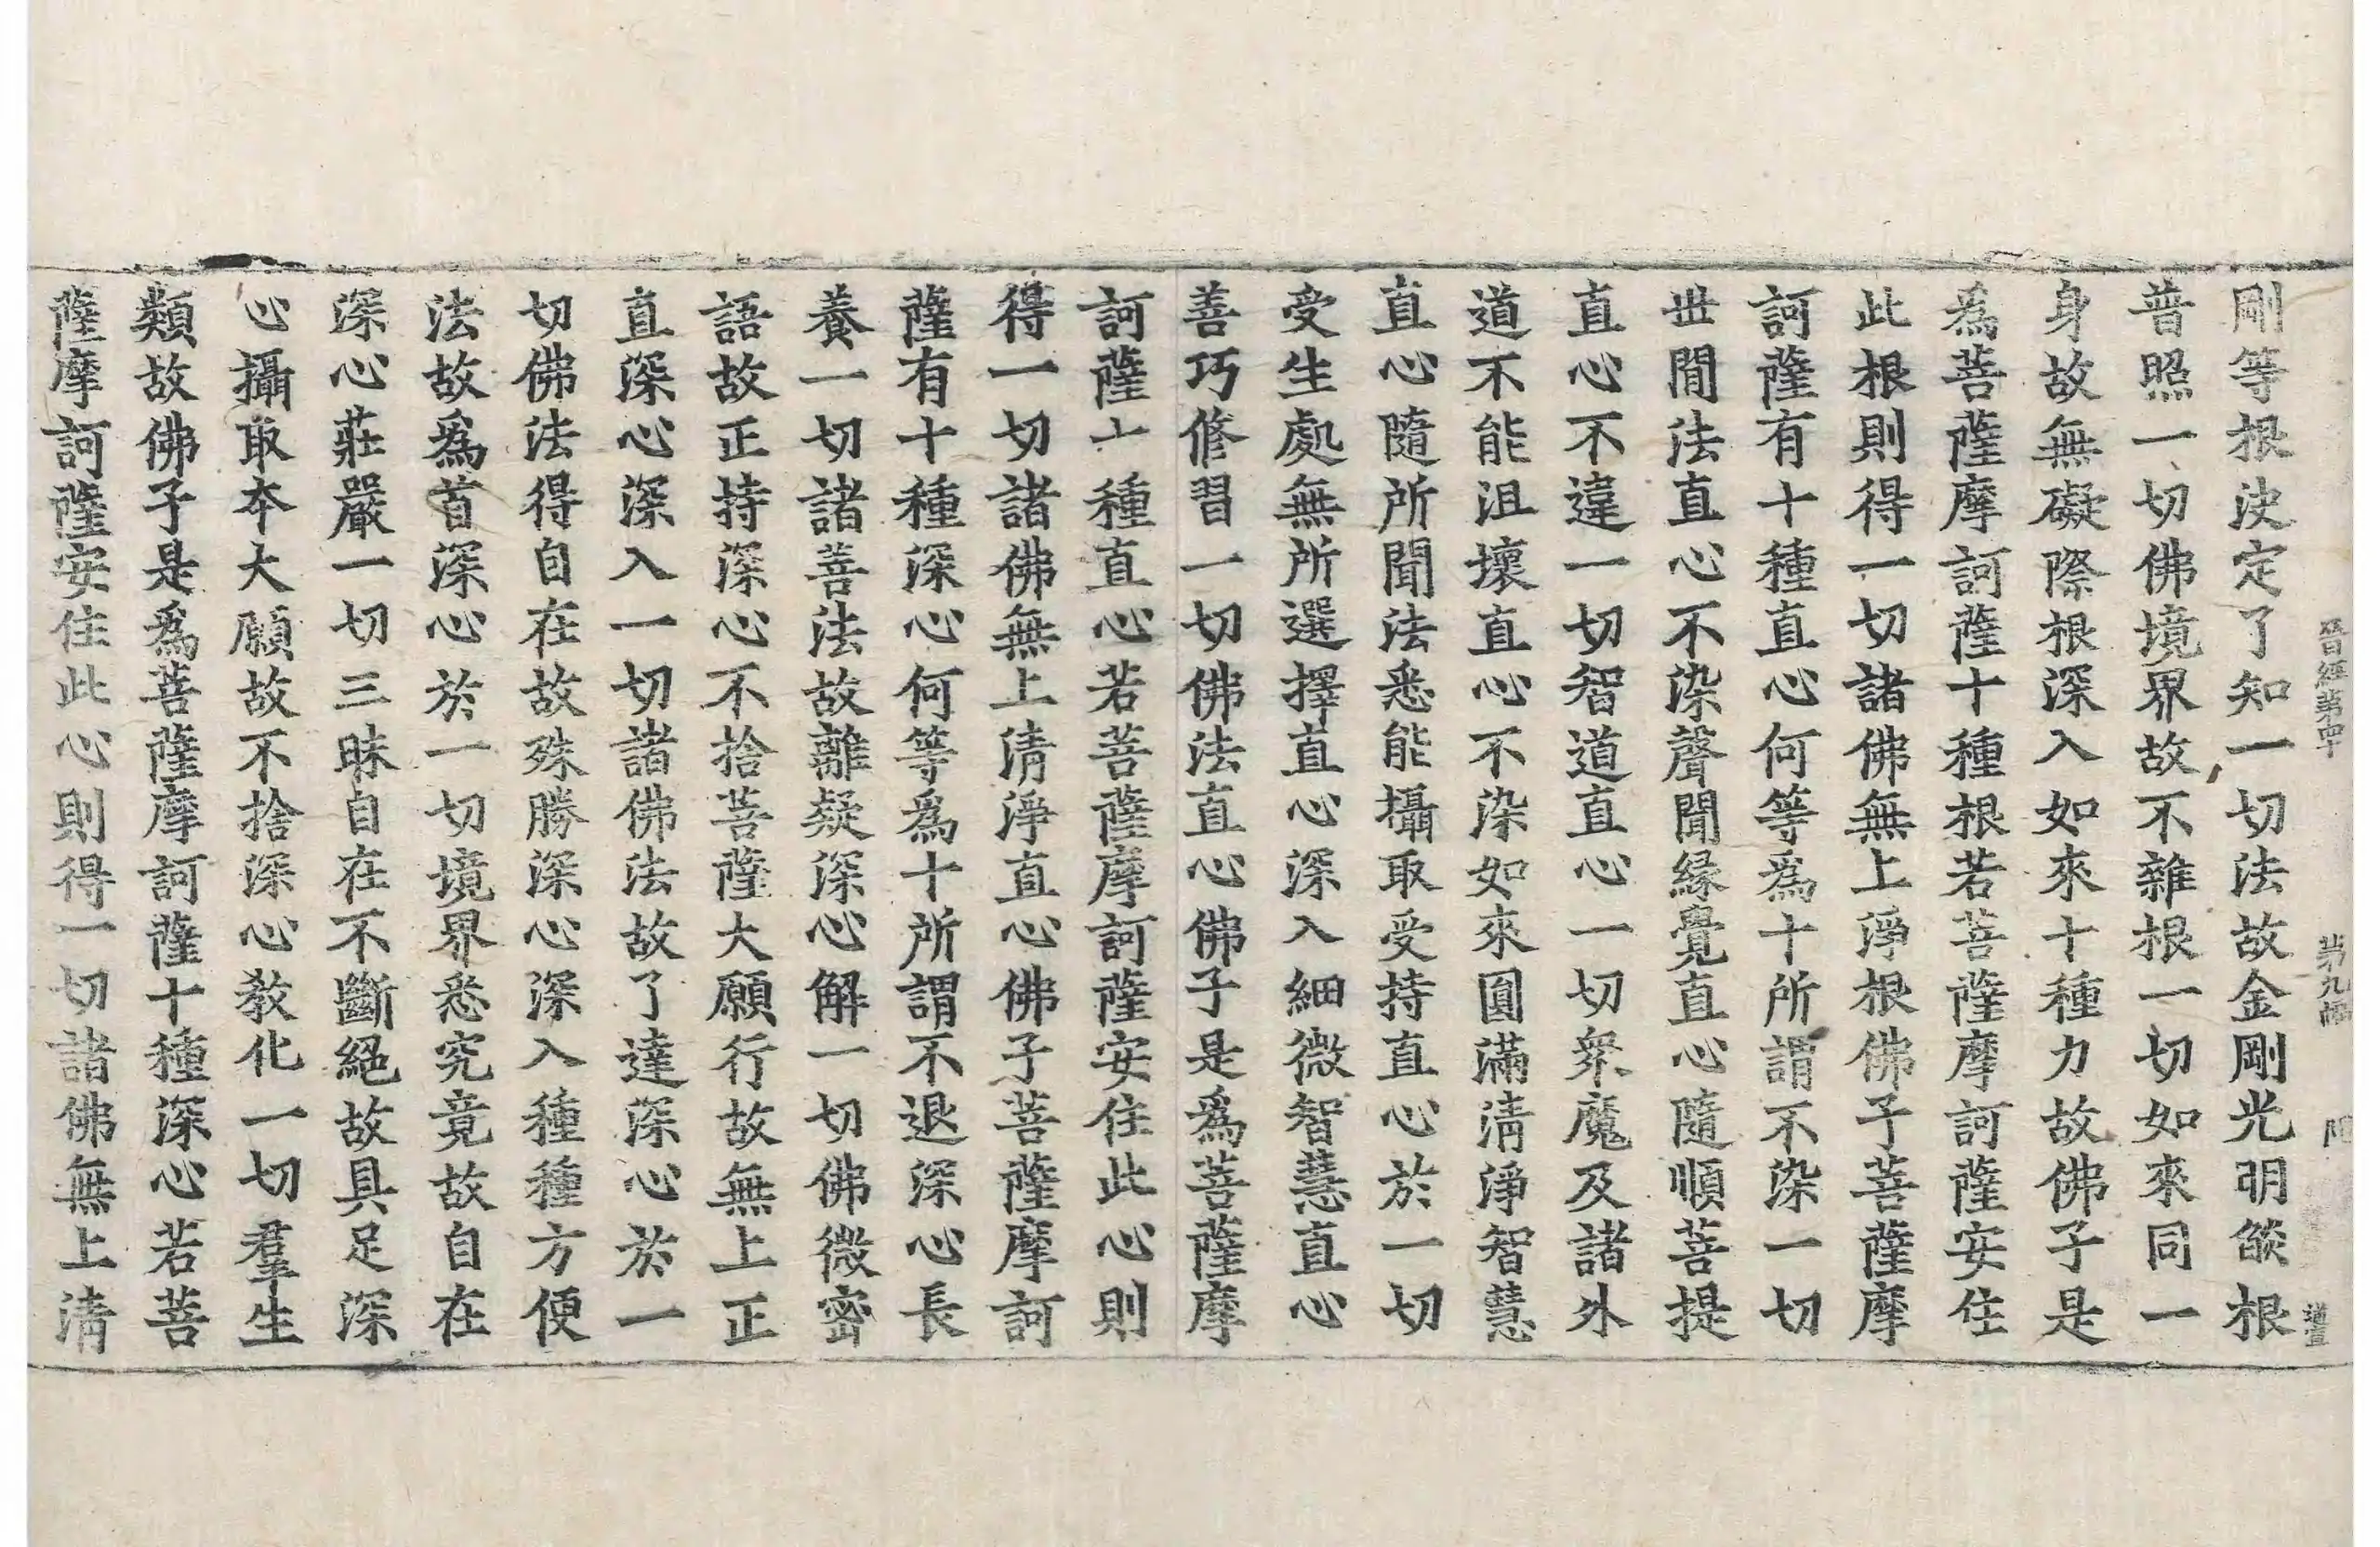 晉經第四十 第九張
剛等根決定了知一切法故金剛光明燄根
普照一切佛境界故不雜根一切如來同一
身故無礙際根深入如來十種力故佛子是
為菩薩摩訶薩十種根若菩薩摩訶薩安住
此根則得一切諸佛無上淨根佛子菩薩摩
訶薩有十種直心何等為十所謂不染一切
世間法直心不染聲聞緣覺直心隨順菩提
直心不違一切智道直心一切眾魔及諸外
道不能沮壞直心不染如來圓滿清淨智慧
直心隨所聞法悉能攝取受持直心於一切
受生處無所選擇直心深入細微智慧直心
善巧修習一切佛法直心佛子是為菩薩摩
訶薩十種直心若菩薩摩訶薩安住此心則
得一切諸佛無上清淨直心佛子菩薩摩訶
薩有十種深心何等為十所謂不退深心長
養一切諸善法故離疑深心解一切佛微密
語故正持深心不捨菩薩大願行故無上正
直深心深入一切諸佛法故了達深心於一
切佛法得自在故殊勝深心深入種種方便
法故為首深心於一切境界悉究竟故自在
深心莊嚴一切三昧自在不斷絕故具足深
心攝取本大願故不捨深心教化一切羣生
類故佛子是為菩薩摩訶薩十種深心若菩
薩摩訶薩安住此心則得一切諸佛無上清